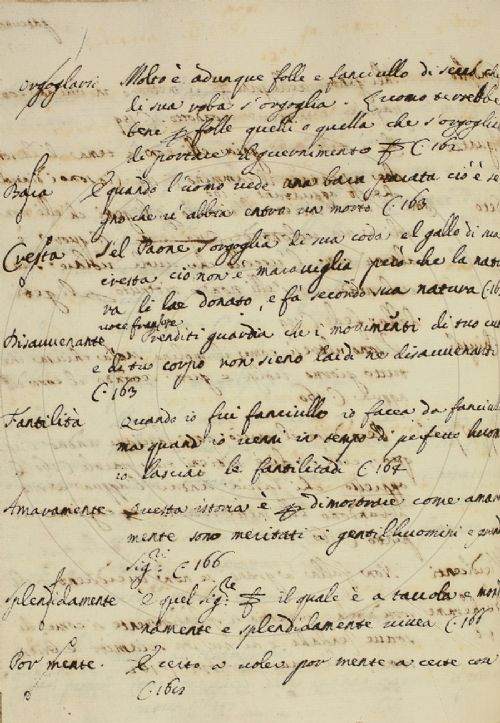 orgogliarsi Molto è adunque folle e fanciullo di senno chi
di sua roba s'orgoglia. Luomo terrebbe
bene p folle quelli o quella che s'orgoglia
di portare il guernimento C. 162
Baia E quando l'uomo vede una baia vuiata ciò è se
gno che vi abbia entro un morto C. 163
Cresta Sel Paone s'orgoglia di sua coda el gallo di sua
cresta ciò non è maraviglia però che la natu
ra li lae donato, e fà secondo sua natura C. 163
voce franzese
Disauvenante Prenditi guardia che i movimenti di tuo cuore
e di tuo corpo non sieno laidi ne disauvenanti
C. 163
Fantilità Quando io fui fanciullo io facea da fanciullo
ma quand io venni in tempo di perfetto huomo
io lasciai le fantilitadi C. 164
Amaramente Questa istoria è p dimostrare come amara
mente sono meritati i gentilhuomini e gran
sig.ri C. 166
Splendidamente e quel sig.re il quale è a tavola e mon
namente e splendidamente vivea C. 166
Por mente. E certo a voler por mente a certe con
C. 16